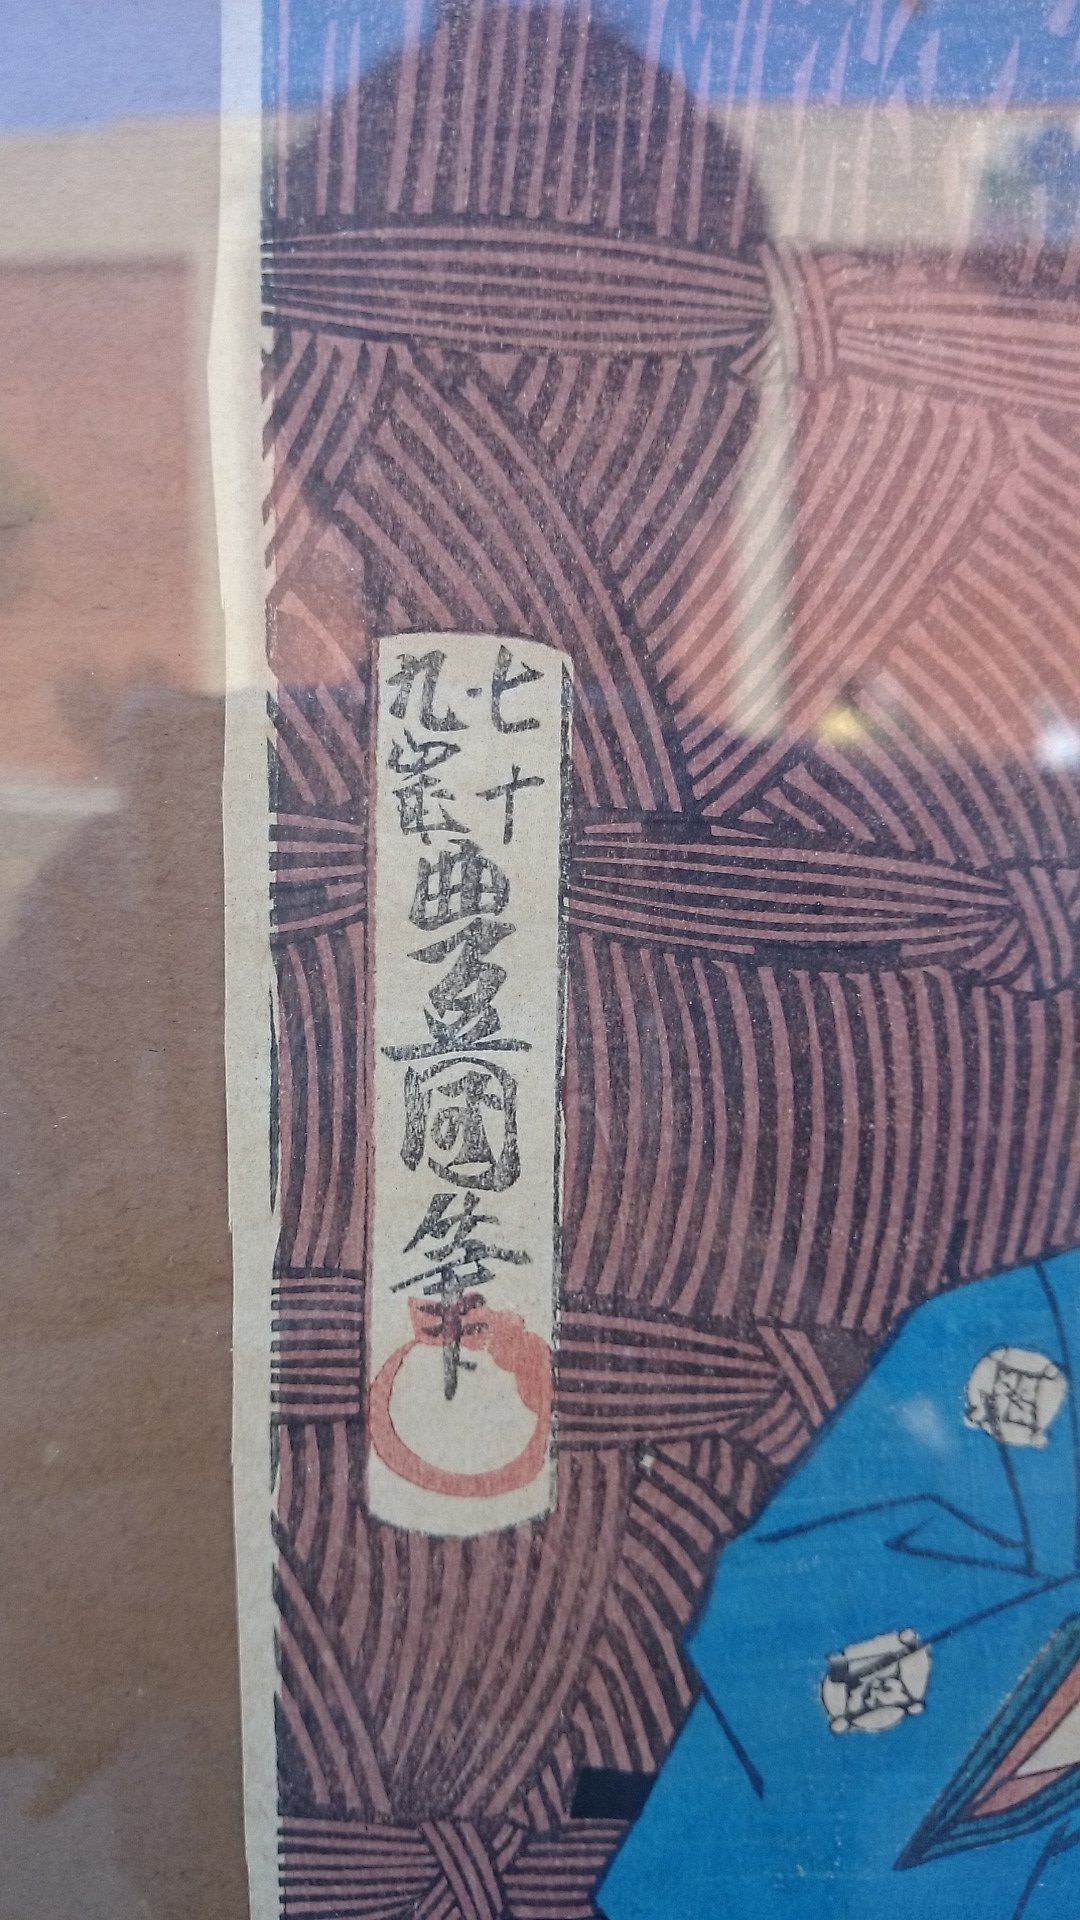 七十
九歳
豊国筆